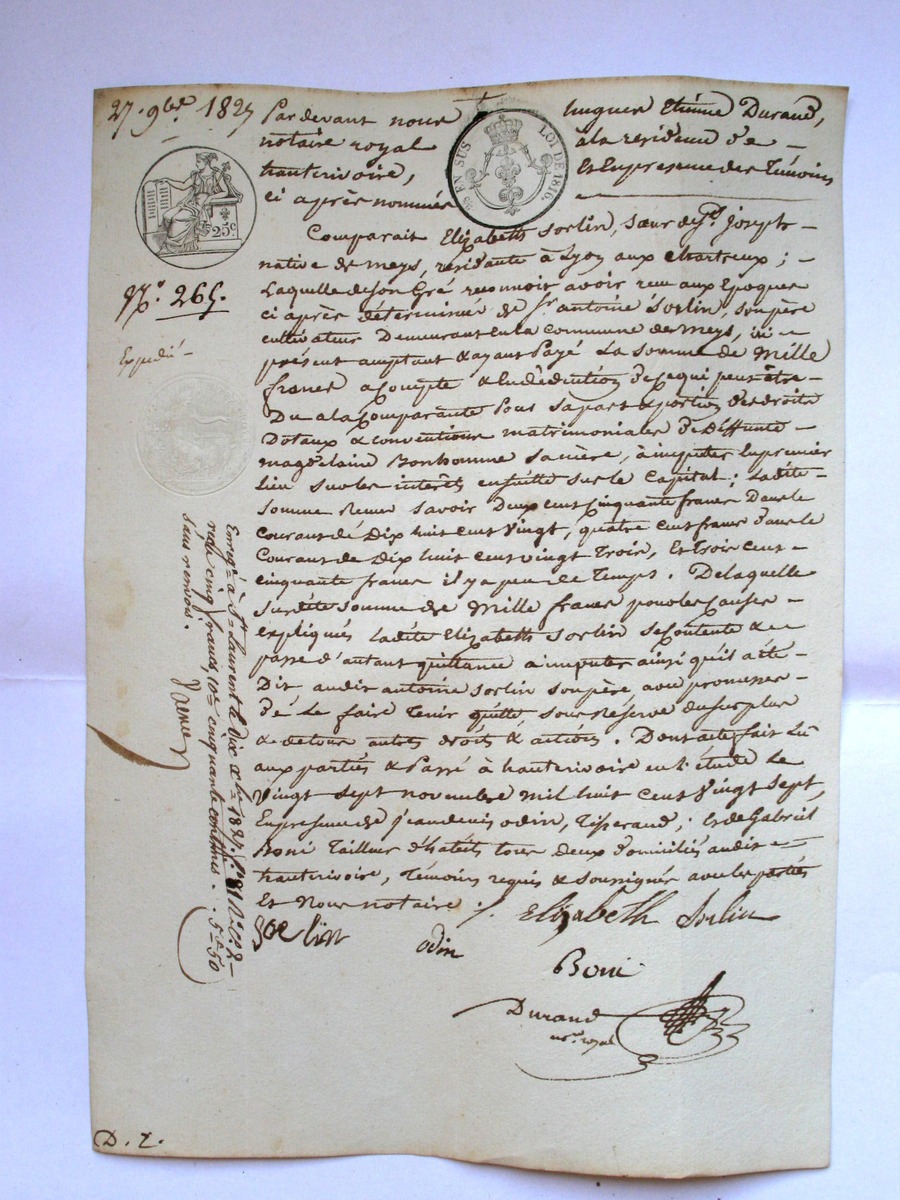 27. 9bre 1827
Par devant nous Hugues Etiènne Durand,
notaire royal à la résidence de
hauterivoire, Et En presence des Témoins
ci après nommés
25 EN SUS LOI DE 1816.
25c
Comparait Elizabeth Sorlin, Sœur de St. Joseph
native de meys, résidante à Lyon aux Chartreux ;
Laquelle de Son Gré reconnoit avoir reçu aux Epoques
ci après déterminées de Sr. antoine Sorlin, Son père
cultivateur Demeurant En la commune de meys, ici
présent acceptant & ayant Payé La Somme de Mille
francs acompte & En dédution de Ce qui peut être
Du a la Comparante Pour Sa part & portion des droits
Dotaux & conventions matrimoniales de Deffunte
magdelaine Bonhomme Sa mère, à imputer En premier
Lieu Sur les intérêts ensuitte Sur le Capital ; Ladite
Somme Reçue Savoir Deux cent Cinquante francs Dans le
Courant de Dix huit cent Vingt, quatre cent francs dans le
Courant de Dix huit Cent vingt Trois, Et Trois Cent
cinquante francs il y a peu de Temps. De laquelle
Susdite Somme de Mille francs pour les Causes
expliqués Ladite Elizabeth Sorlin Se Contente &
passe d'autant quittance à imputer ainsi qu'il a été
Dit audit antoine Sorlin Son père, avec promesse
de Le faire Tenir quitte Sous Réserve du Surplus
& de tous autres droits & actions. Dont acte fait Lu
aux parties & Passé à hauterivoire en l'étude Le
Vingt Sept novembre Mil huit cent Vingt Sept,
En presence de jean denis odin, Tisserand ; Et de Gabriel
Boni Tailleur d'habits tous deux domiciliés audit
hauterivoire, Témoins requis & Soussignés avec les parties
Et Nous notaire ./.
Elizabeth Sorlin
Sorlin
odin
Boni
Durand
nore. royal
No. 265.
Expedié
Enregé à St Laurent le dix xbre 1827. fo 81 Vo Co 2
reçu cinq francs, 10e cinquante centimes. 5f50
sans renvois.
D. Z.